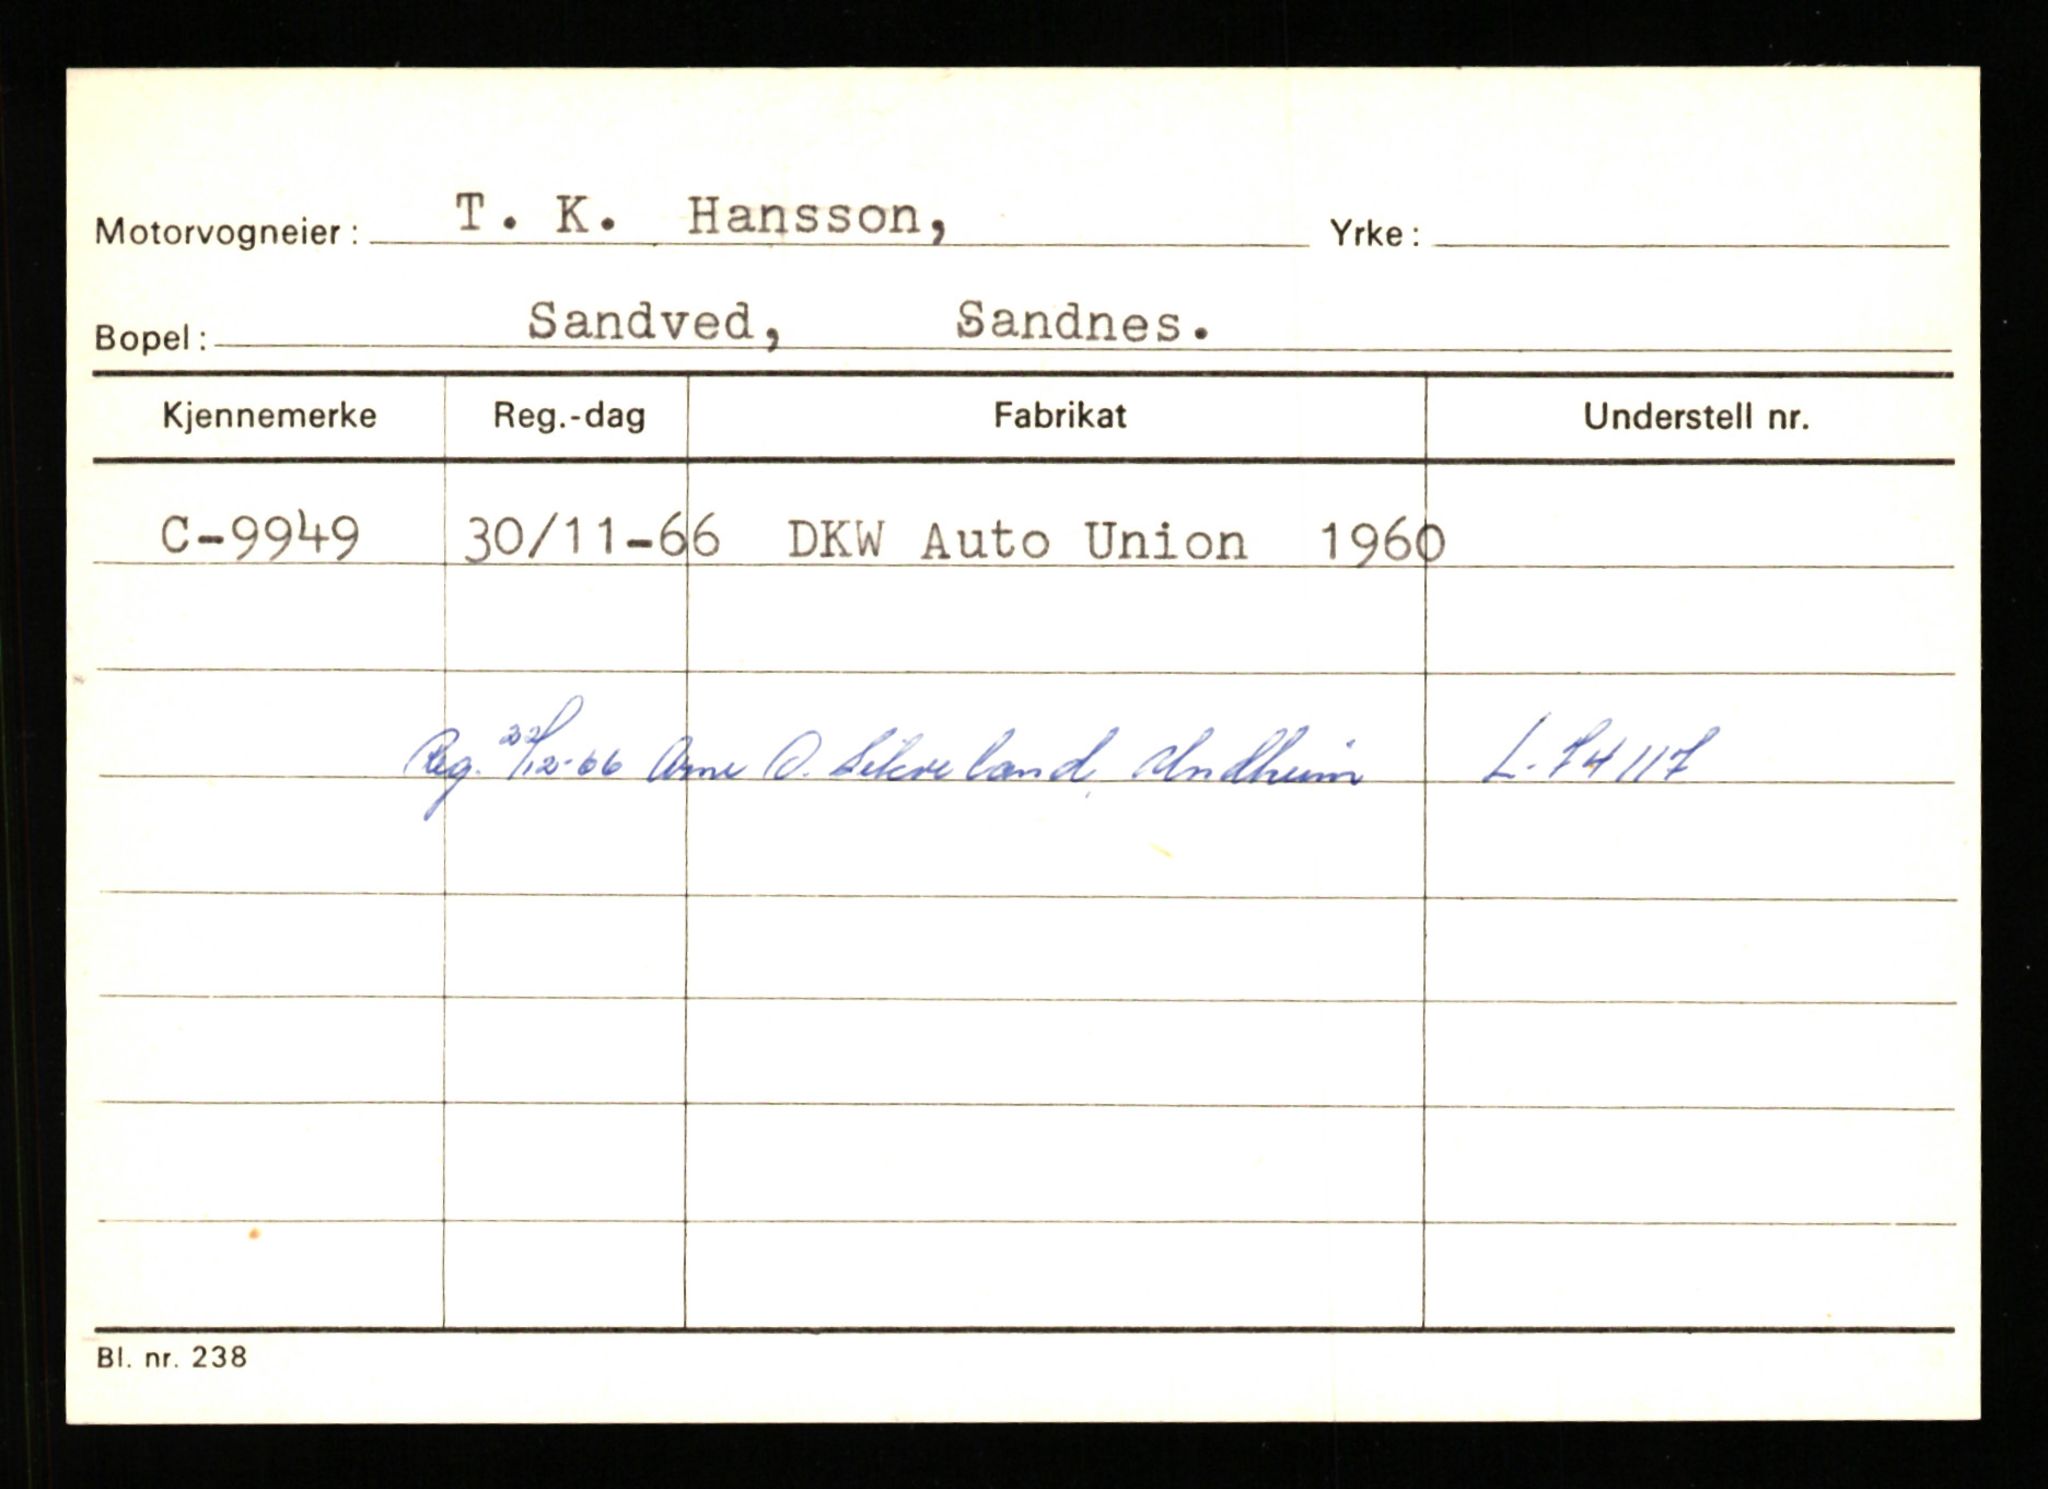 Motorvogneier: T. K. Hansson, Yrke:
Bopel: Sandved, Sandnes.
Kjennemerke Reg.-dag Fabrikat Understell nr.
C-9949 30/11-66 DKW Auto Union 1960
Reg. 22/12-66 Arne O. Sikveland, Undheim L-74117
Bl. nr. 238